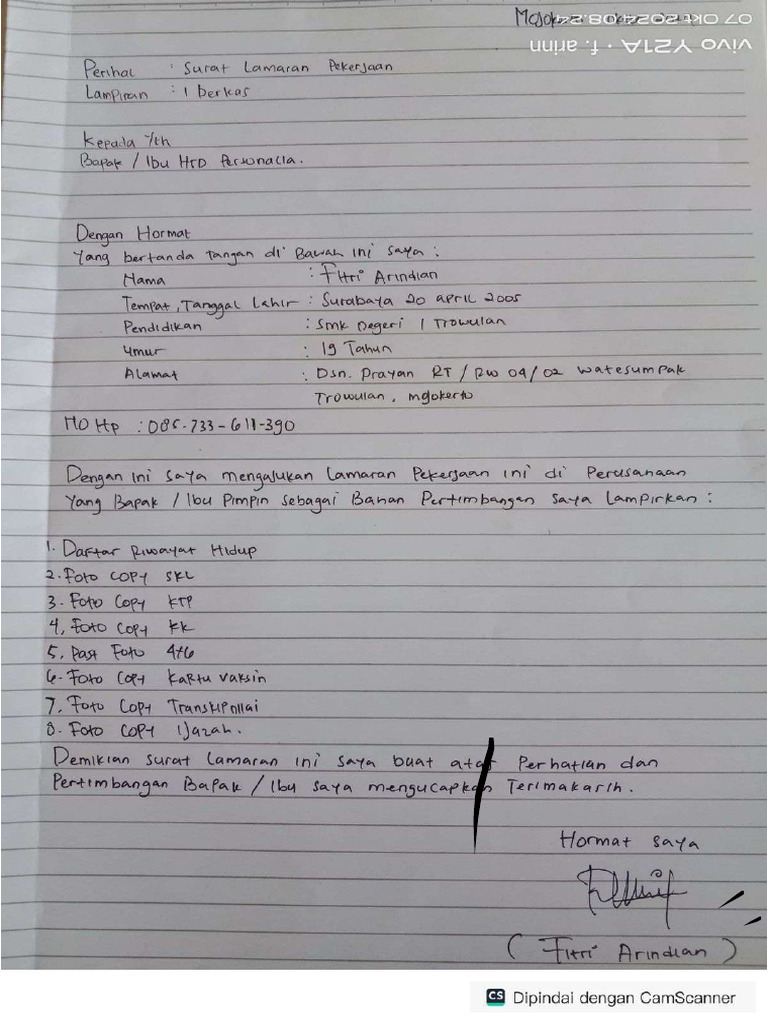 Perihal : Surat Lamaran Pekerjaan
Lampiran : 1 berkas
Kepada Yth
Bapak / Ibu HRD Personalia.
Dengan Hormat
Yang bertanda tangan di Bawah ini saya :
Nama : Fitri Arindian
Tempat, Tanggal Lahir : Surabaya 20 april 2005
Pendidikan : Smk negeri 1 Trowulan
Umur : 19 Tahun
Alamat : Dsn. Prayan RT / RW 04 / 02 watesumpak
Trowulan, mojokerto
NO Hp : 085-733-611-390
Dengan ini saya mengajukan Lamaran Pekerjaan ini di Perusahaan
Yang Bapak / Ibu Pimpin sebagai Bahan Pertimbangan saya Lampirkan :
1. Daftar Riwayat Hidup
2. Foto COPY SKL
3. Foto Copy KTP
4. Foto Copy KK
5. Past Foto 4x6
6. Foto Copy Kartu vaksin
7. Foto Copy Transkip nilai
8. Foto COPY Ijazah.
Demikian surat Lamaran ini saya buat atas Perhatian dan
Pertimbangan Bapak / Ibu saya mengucapkan Terimakasih.
Hormat saya
( Fitri Arindian )
vivo Y21A · f. arinn
07 Okt 2024 08.24
CS Dipindai dengan CamScanner